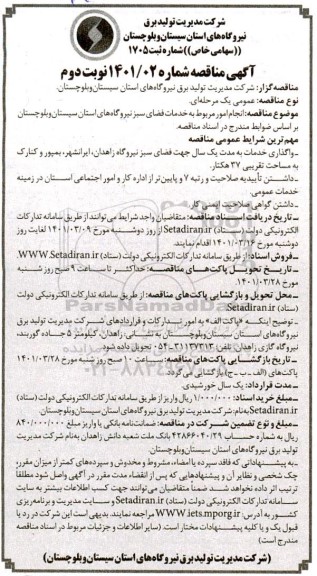 شرکت مدیریت تولید برق
نیروگاه‌های استان سیستان‌وبلوچستان
((سهامی خاص)) شماره ثبت ۱۷۰۵
آگهی مناقصه شماره ۱۴۰۱/۰۲ نوبت دوم
مناقصه‌گزار: شرکت مدیریت تولید برق نیروگاه‌های استان سیستان‌وبلوچستان.
نوع مناقصه: عمومی یک مرحله‌ای.
موضوع مناقصه: انجام امور مربوط به خدمات فضای سبز نیروگاه‌های استان سیستان‌وبلوچستان
بر اساس ضوابط مندرج در اسناد مناقصه.
مهم‌ترین شرایط عمومی مناقصه
ـ واگذاری خدمات به مدت یک سال جهت فضای سبز نیروگاه زاهدان، ایرانشهر، بمپور و کنارک
به مساحت تقریبی ۳۷ هکتار.
ـ داشتن تأییدیه صلاحیت و رتبه ۷ و پایین‌تر از اداره کار و امور اجتماعی استان در زمینه
خدمات عمومی.
ـ داشتن گواهی صلاحیت ایمنی کار
ـ تاریخ دریافت اسناد مناقصه: متقاضیان واجد شرایط می‌توانند از طریق سامانه تدارکات
الکترونیکی دولت (ستاد) Setadiran.ir از روز دوشنبه مورخ ۱۴۰۱/۰۳/۰۹ لغایت روز
دوشنبه مورخ ۱۴۰۱/۰۳/۱۶ اقدام نمایند.
ـ فروش اسناد: از طریق سامانه تدارکات الکترونیکی دولت (ستاد) WWW.Setadiran.ir.
ـ تاریخ تحویل پاکت‌های مناقصه: حداکثر تا ساعت ۹ صبح روز شنبه
مورخ ۱۴۰۱/۰۳/۲۸
ـ محل تحویل و بازگشایی پاکت‌های مناقصه: از طریق سامانه تدارکات الکترونیکی دولت
(ستاد) Setadiran.ir
ـ توضیح اینکه: «پاکت الف» به امور تدارکات و قراردادهای شرکت مدیریت تولید برق
نیروگاه‌های استان سیستان‌وبلوچستان به نشانی زاهدان، کیلومتر ۵ جاده گوربند،
نیروگاه گازی زاهدان تلفن: ۳۱۱۳۷۳۱۳-۰۵۴ تحویل داده شود.
ـ تاریخ بازگشایی پاکت‌های مناقصه: ساعت ۱۰ صبح روز شنبه مورخ ۱۴۰۱/۰۳/۲۸
پاکت‌های (الف - ب - ج) بازگشایی می‌گردد.
ـ مدت قرارداد: یک سال خورشیدی.
ـ مبلغ خرید اسناد: ۱/۰۰۰/۰۰۰ ریال واریز از طریق سامانه تدارکات الکترونیکی دولت (ستاد)
Setadiran.ir به‌نام: شرکت مدیریت تولید برق نیروگاه‌های استان سیستان‌وبلوچستان.
ـ مبلغ و نوع تضمین شرکت در مناقصه: ضمانت‌نامه بانکی یا واریز مبلغ ۸۴۰/۰۰۰/۰۰۰
ریال به شماره حساب ۴۲۸۶۶۰۴۰/۲۹ بانک ملت شعبه دانش زاهدان به‌نام شرکت مدیریت
تولید برق نیروگاه‌های استان سیستان‌وبلوچستان.
ـ به پیشنهاداتی که فاقد سپرده یا امضاء، مشروط و مخدوش و سپرده‌های کمتر از میزان مقرر،
چک شخصی و نظایر آن و پیشنهادهایی که پس از انقضاء مدت مقرر در آگهی واصل شود مطلقاً
ترتیب اثر داده نخواهد شد. ضمناً متقاضیان می‌توانند جهت کسب اطلاعات بیشتر به سایت
سامانه تدارکات الکترونیکی دولت (ستاد) Setadiran.ir و سایت مدیریت و برنامه‌ریزی
کشور به آدرس: WWW.iets.mporg.ir مراجعه نمایند. بدیهی است این شرکت در رد یا
قبول یک و یا کلیه پیشنهادات مختار است (سایر اطلاعات و جزئیات مربوط در اسناد مناقصه
مندرج است)
(شرکت مدیریت تولید برق نیروگاه‌های استان سیستان‌وبلوچستان)